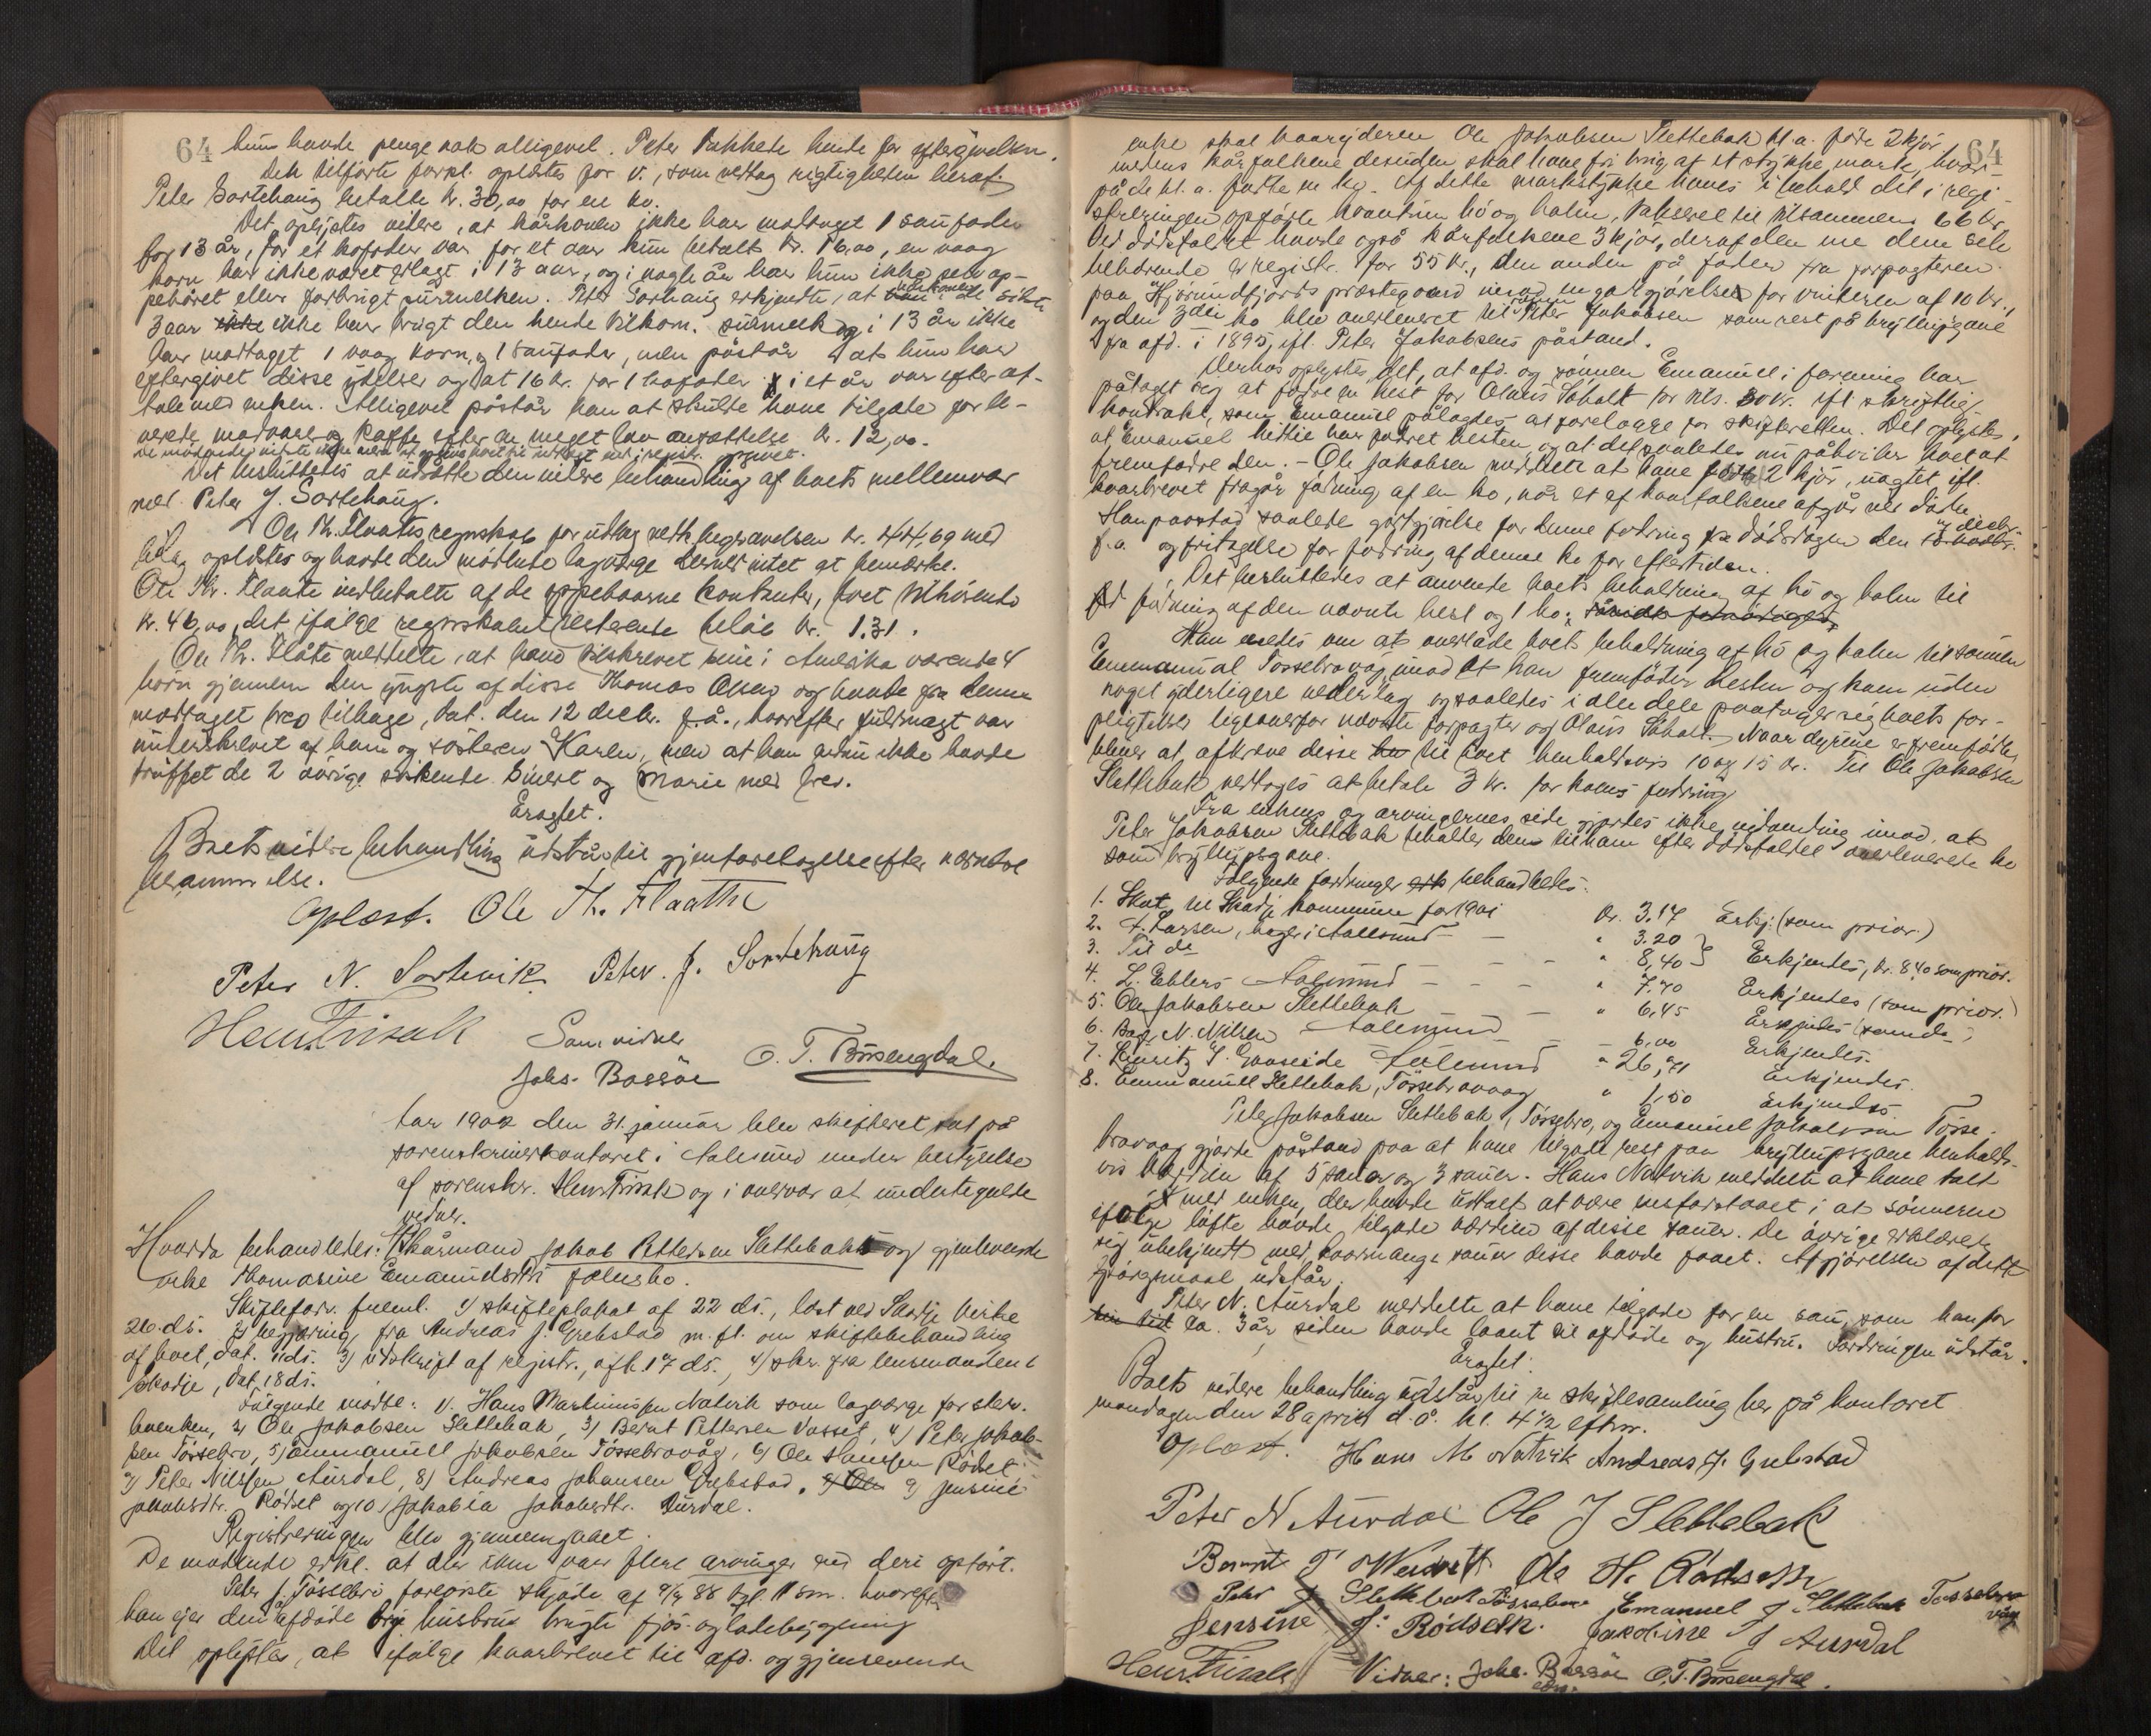 64
hun havde penge nok alligevel. Peter takkede hende for eftergivelsen.
Det tilførte forpl. oplæstes for v., som vedtog rigtigheden heraf.
Peter Sortehaug betalte kr. 30,00 for en ko.
Det oplystes videre, at kårkonen ikke har modtaget 1 saufoder
for 13 år, for et kofoder var for et aar kun betalt kr. 16,00, en vaag
korn har ikke været erlagt i 13 aar, og i nogle år har hun ikke selv op-
pebåret eller forbrugt surmelken. Peter Sorhaug erkjendte, at i de sidste
3 aar ikke har brugt den hende tilkom. surmelk og i 13 år ikke
har modtaget 1 vaag korn, og 1 saufoder, men påstår at hun har
eftergivet disse ydelser og at 16 kr. for 1 kofoder i et år var efter af-
tale med enken. Alligevel påstår han at skulde have tilgode for le-
verede madvarer og kaffe efter en meget lav ansættelse kr. 12,00.
De mødende vidste ikke mere af opgivet.
Det besluttedes at udsætte den videre behandling af boets mellemvær
med Peter J. Sortehaug.
Ole Th. Flaates regnskab for udlæg vedk. begravelsen kr. 44,69 med
bilag oplæstes og havde den mødende lagværge derved intet at bemærke.
Ole Th. Flaate indbetalte af de oppebaarne kontanter, boet tilhørende
kr. 46,00, det ifølge regnskabet resterende beløb kr. 1.31.
Ole Th. Flåte meddelte, at havd tilskrevet sine i Amerika værende 4
børn gjennem den yngste af disse Thomas Olsen og havde fra denne
modtaget brev tilbage, dat. den 12 decbr. f.å., hvorefter fuldmagt var
underskrevet af ham og søsteren Karen, men at han endnu ikke havde
truffet de 2 øvrige søskende Sivert og Marie med brev.
Eragtet.
Boets videre behandling udstår til gjenforetagelse efter nærmere
berammelse.
Oplæst. Ole Th. Flaathe
Peter N. Sortevik Peter. J. Sortehaug
Henr. Frisak Som vidner
Johs. Bassøe O. T. Bjørsengdal.
Aar 1902 den 31. januar blev skifteret sat på
sorenskriverkontoret i Aalesund under bestyrelse
af sorenskr. Henr. Frisak og i overvær af undertegnede
vidner.
Hvorda behandledes: Kårmand Jakob Pettersen Slettebak og gjenlevende
enke Thomasine Emanuelsdtr. fælesbo.
Skifteforv. freml. 1) skifteplakat af 22 ds., læst ved Skodje kirke
26. ds. 2) begjæring fra Andreas J. Grebstad m. fl. om skiftebehandling
af boet, dat. ds. 3) udskrift af registr., afh. 17 ds., 4) skr. fra lensmanden i
Skodje, dat. 18 ds.
Følgende mødte: 1. Hans Martinussen Natvik som lagværge for sterv-
boenken, 2) Ole Jakobsen Slettebak, 3) Bernt Pettersen Vasset, 4) Peter Jakob-
sen Tøssebro, 5) Emmanuell Jakobsen Tøssebrovåg, 6) Ole Hansen Rødset
7) Peter Nilssen Aurdal, 8) Andreas Johansen Grebstad, 9) Jensine
Jakobsdtr. Rødset og 10) Jakobia Jakobsdtr. Aurdal.
Registreringen blev gjennemgaaet.
De mødende erkl. at der ikke var flere arvinger end deri opført.
Peter J. Tøssebro foreviste skjøde af 9/4 88 tgl. 11 s.m. hvorefter
han ejer den af afdøde og hustru brugte fjøs- og ladebygning
Det oplystes, at ifølge kaarbrevet til afd. og gjenlevende
64
enke skal kaaryderen Ole Jakobsen Slettebak bl.a. føde 2 kjør,
medens kårfolkene desuden skal have fri brug af et stykke mark, hvor-
på de bl. a. fødte en ko. Af dette markstykke haves i behold det i regi-
streringen opførte kvantum hø og halm, takseret til tilsammen 66 kr.
Ved dødsfaldet havde også kårfolkene 3 kjør, deraf den ene dem selv
tilhørende er registr. for 55 kr., den anden på foder fra forpagteren
paa Hjørundfjords præstegaard imod en godtgjørelse for vinteren af 10 kr.,
og den 3die ko blev overleveret til sønnen Peter Jakobsen som rest på bryllupsgave
fra afd. i 1895, ifl. Peter Jakobsens påstand.
Derhos oplystes det, at afd. og sønnen Emanuel i forening har
påtaget sig at fodre en hest for Olaus Søholt for tils. 30 kr. ifl. skriftlig
kontrakt, som Emanuel pålagdes at forelægge for skifteretten. Det oplystes,
at Emanuel hittil har fodret hesten, og at det saaledes nu påhviler boet at
fremfodre den. – Ole Jakobsen meddelte at have født 2 kjør, uagtet ifl.
kaarbrevet fragår fødning af en ko, når et af kaarfolkene afgår ved døde
Han paastod saaledes godtgjørelse for denne fodring fra dødsdagen den decbr.
f.a. og fritagelse for fodring af denne ko for eftertiden.
Det besluttedes at anvende boets beholdning af hø og halm til
fodring af den nævnte hest og 1 ko,
Man enedes om at overlade boets beholdning af hø og halm til sønnen
Emmanuel Tøssebrovåg imod at han fremføder hesten og koen uden
noget yderligere vederlag og saaledes i alle dele paatager sig boets for-
pligtelser ligeoverfor nævnte forpagter og Olaus Søholt. Naar dyrene er fremfødte,
bliver at afkræve disse til boet henholdsvis 10 og 15 kr. Til Ole Jakobsen
Slettebak vedtoges at betale 3 kr. for koens fodring
Fra enkens og arvingernes side gjordes ikke indvending imod, at
Peter Jakobsen Slettebak beholder den til ham efter dødsfaldet overleverede ko
som bryllupsgave.
Følgende fordringer behandledes:
1. Skat til Skodje kommune for 1901 kr. 3.17 Erkj. (som prior.)
2. A. Larsen, bager i Aalesund – – " 3.20
3. Til do – – – " 8,40 } Erkjendes, kr. 8,40 som prior.
4. L. Ehlers Aalesund – – – " 7.70 Erkjendes (som prior.)
5. Ole Jakobsen Slettebak – " 6,45 Erkjendes (som do.)
6. Bag. N. Nilsen Aalesund – – 6,00 Erkjendes.
7. Lauritz J. Gaaseide Aalesund " 26,71 Erkjendes.
8. Emmanuell Slettebak, Tøssebrovaag " 1,50 Erkjendes.
Peter Jakobsen Slettebak, Tøssebro, og Emanuel Jakobsen Tøsse-
brovaag gjorde påstand paa at have tilgode rest paa bryllupsgave henholds-
vis værdien af 5 sauer og 3 sauer. Hans Natvik meddelte at have talt
med enken, der havde udtalt at være indforstaaet i at sønnerne
ifølge løfte havde tilgode værdien af disse sauer. De øvrige erklærede
sig ubekjendt med, hvormange sauer disse havde faaet. Afgjørelsen af dette
spørgsmaal udstår.
Peter N. Aurdal meddelte at have tilgode for en sau, som han for
ca. 3 år siden havde laant til afdøde og hustru. Fordringen udstår.
Eragtet:
Boets videre behandling udstår til en skiftesamling her på kontoret
mandagen den 28 april d.å. kl. 4 1/2 efterm.
Oplæst. Hans M Natvik Andreas J. Grebstad
Peter N Aurdal Ole J Slettebak
Bernt P Wasset Ole H. Rødseth
Peter J Slettebak Tøssebro Emanuel J Slettebak Tøssebro
våg
Jensine J. Rødseth. Jakobine J Aurdal
Henr. Frisak Vidner: Johs. Bassøe O. T. Bjørsengdal.